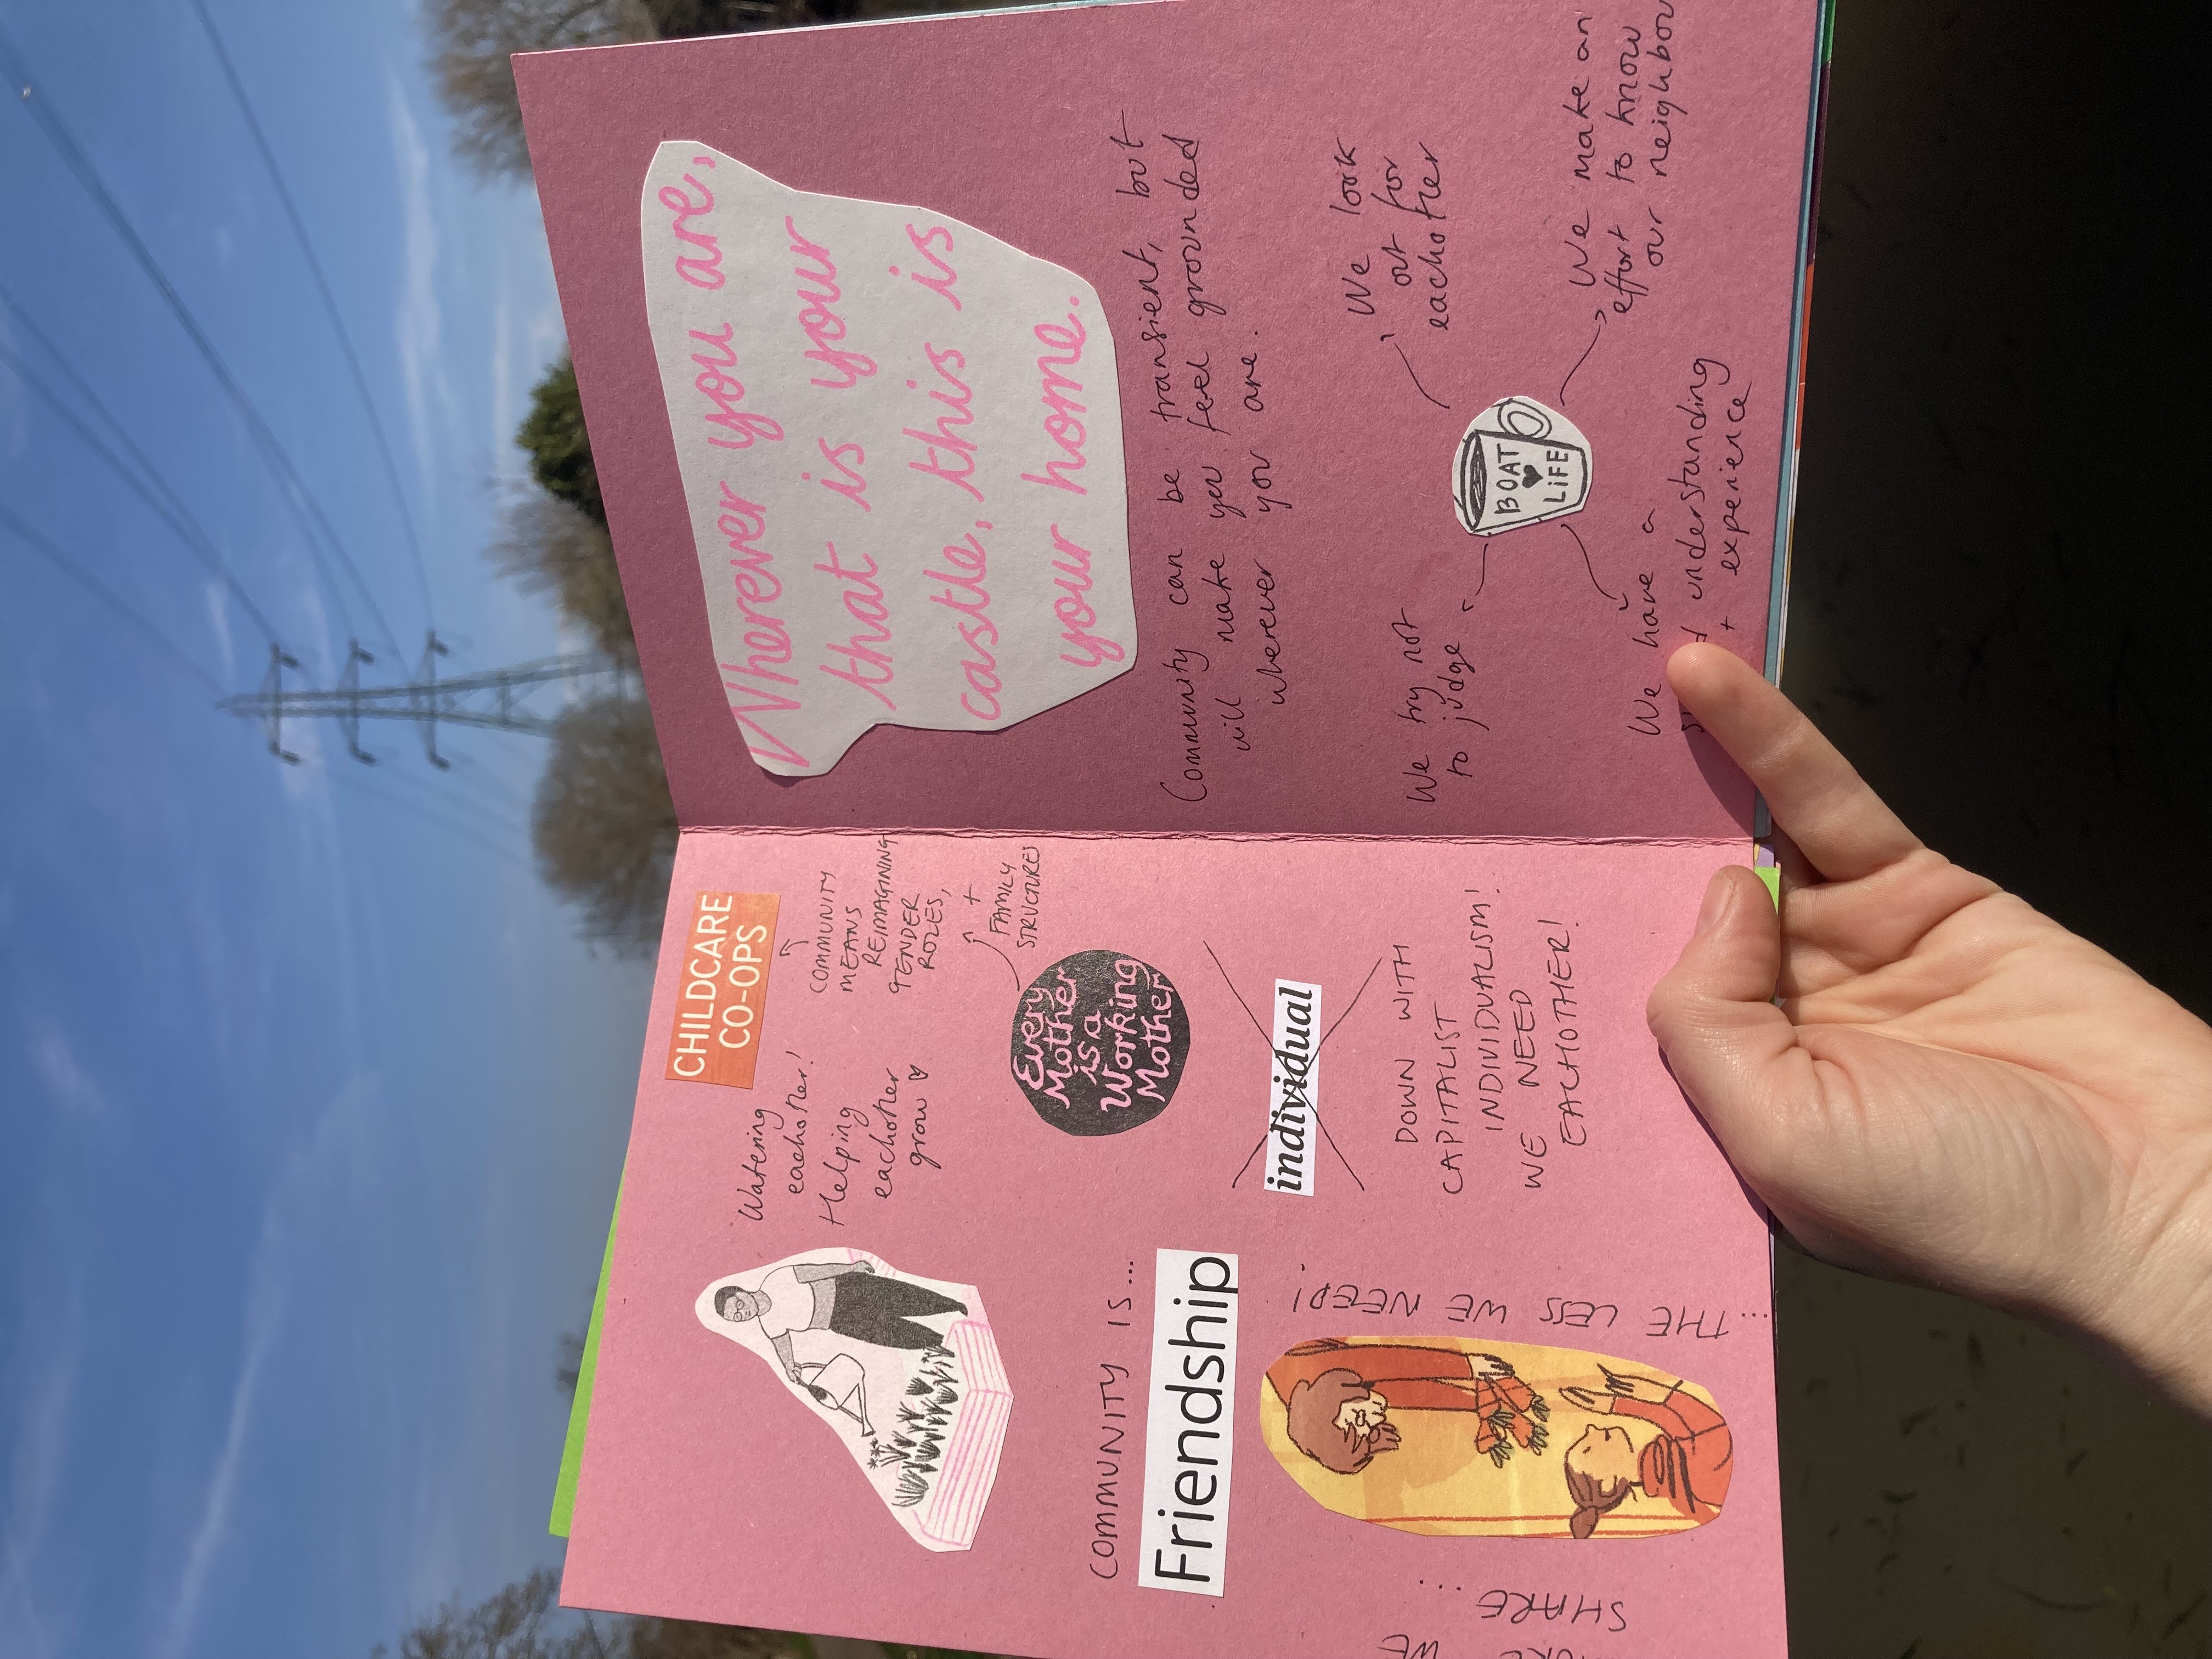 Watering
eachother!
Helping
eachother
grow
CHILDCARE
CO-OPS
COMMUNITY
MEANS
REIMAGINING
GENDER
ROLES,
+
FAMILY
STRUCTURES
Every
Mother
is a
Working
Mother
COMMUNITY IS...
Friendship
individual
DOWN WITH
CAPITALIST
INDIVIDUALISM!
WE NEED
EACHOTHER!
WE
SHARE ...
...THE LESS WE NEED!
Wherever you are,
that is your
castle, this is
your home.
Community can be transient, but
will make you feel grounded
wherever you are.
We try not
to judge
We look
out for
eachother
BOAT
LIFE
We have a
understanding
+ experience
We make an
effort to know
our